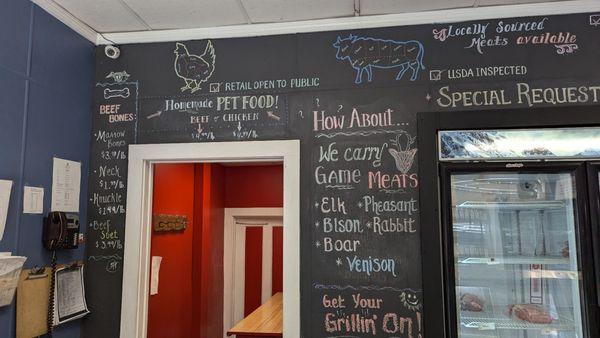 Locally Sourced
Meats available
RETAIL OPEN TO PUBLIC
USDA INSPECTED
SPECIAL REQUEST
Homemade PET FOOD!
BEEF OR CHICKEN
BEEF
BONES
Marrow
Bones
Neck
Knuckle
Beef
Suet
$3.99/lb
How About...
We carry
Game
MEATS
Elk
Pheasant
Bison
Rabbit
Boar
Venison
Get Your
Grillin' On!